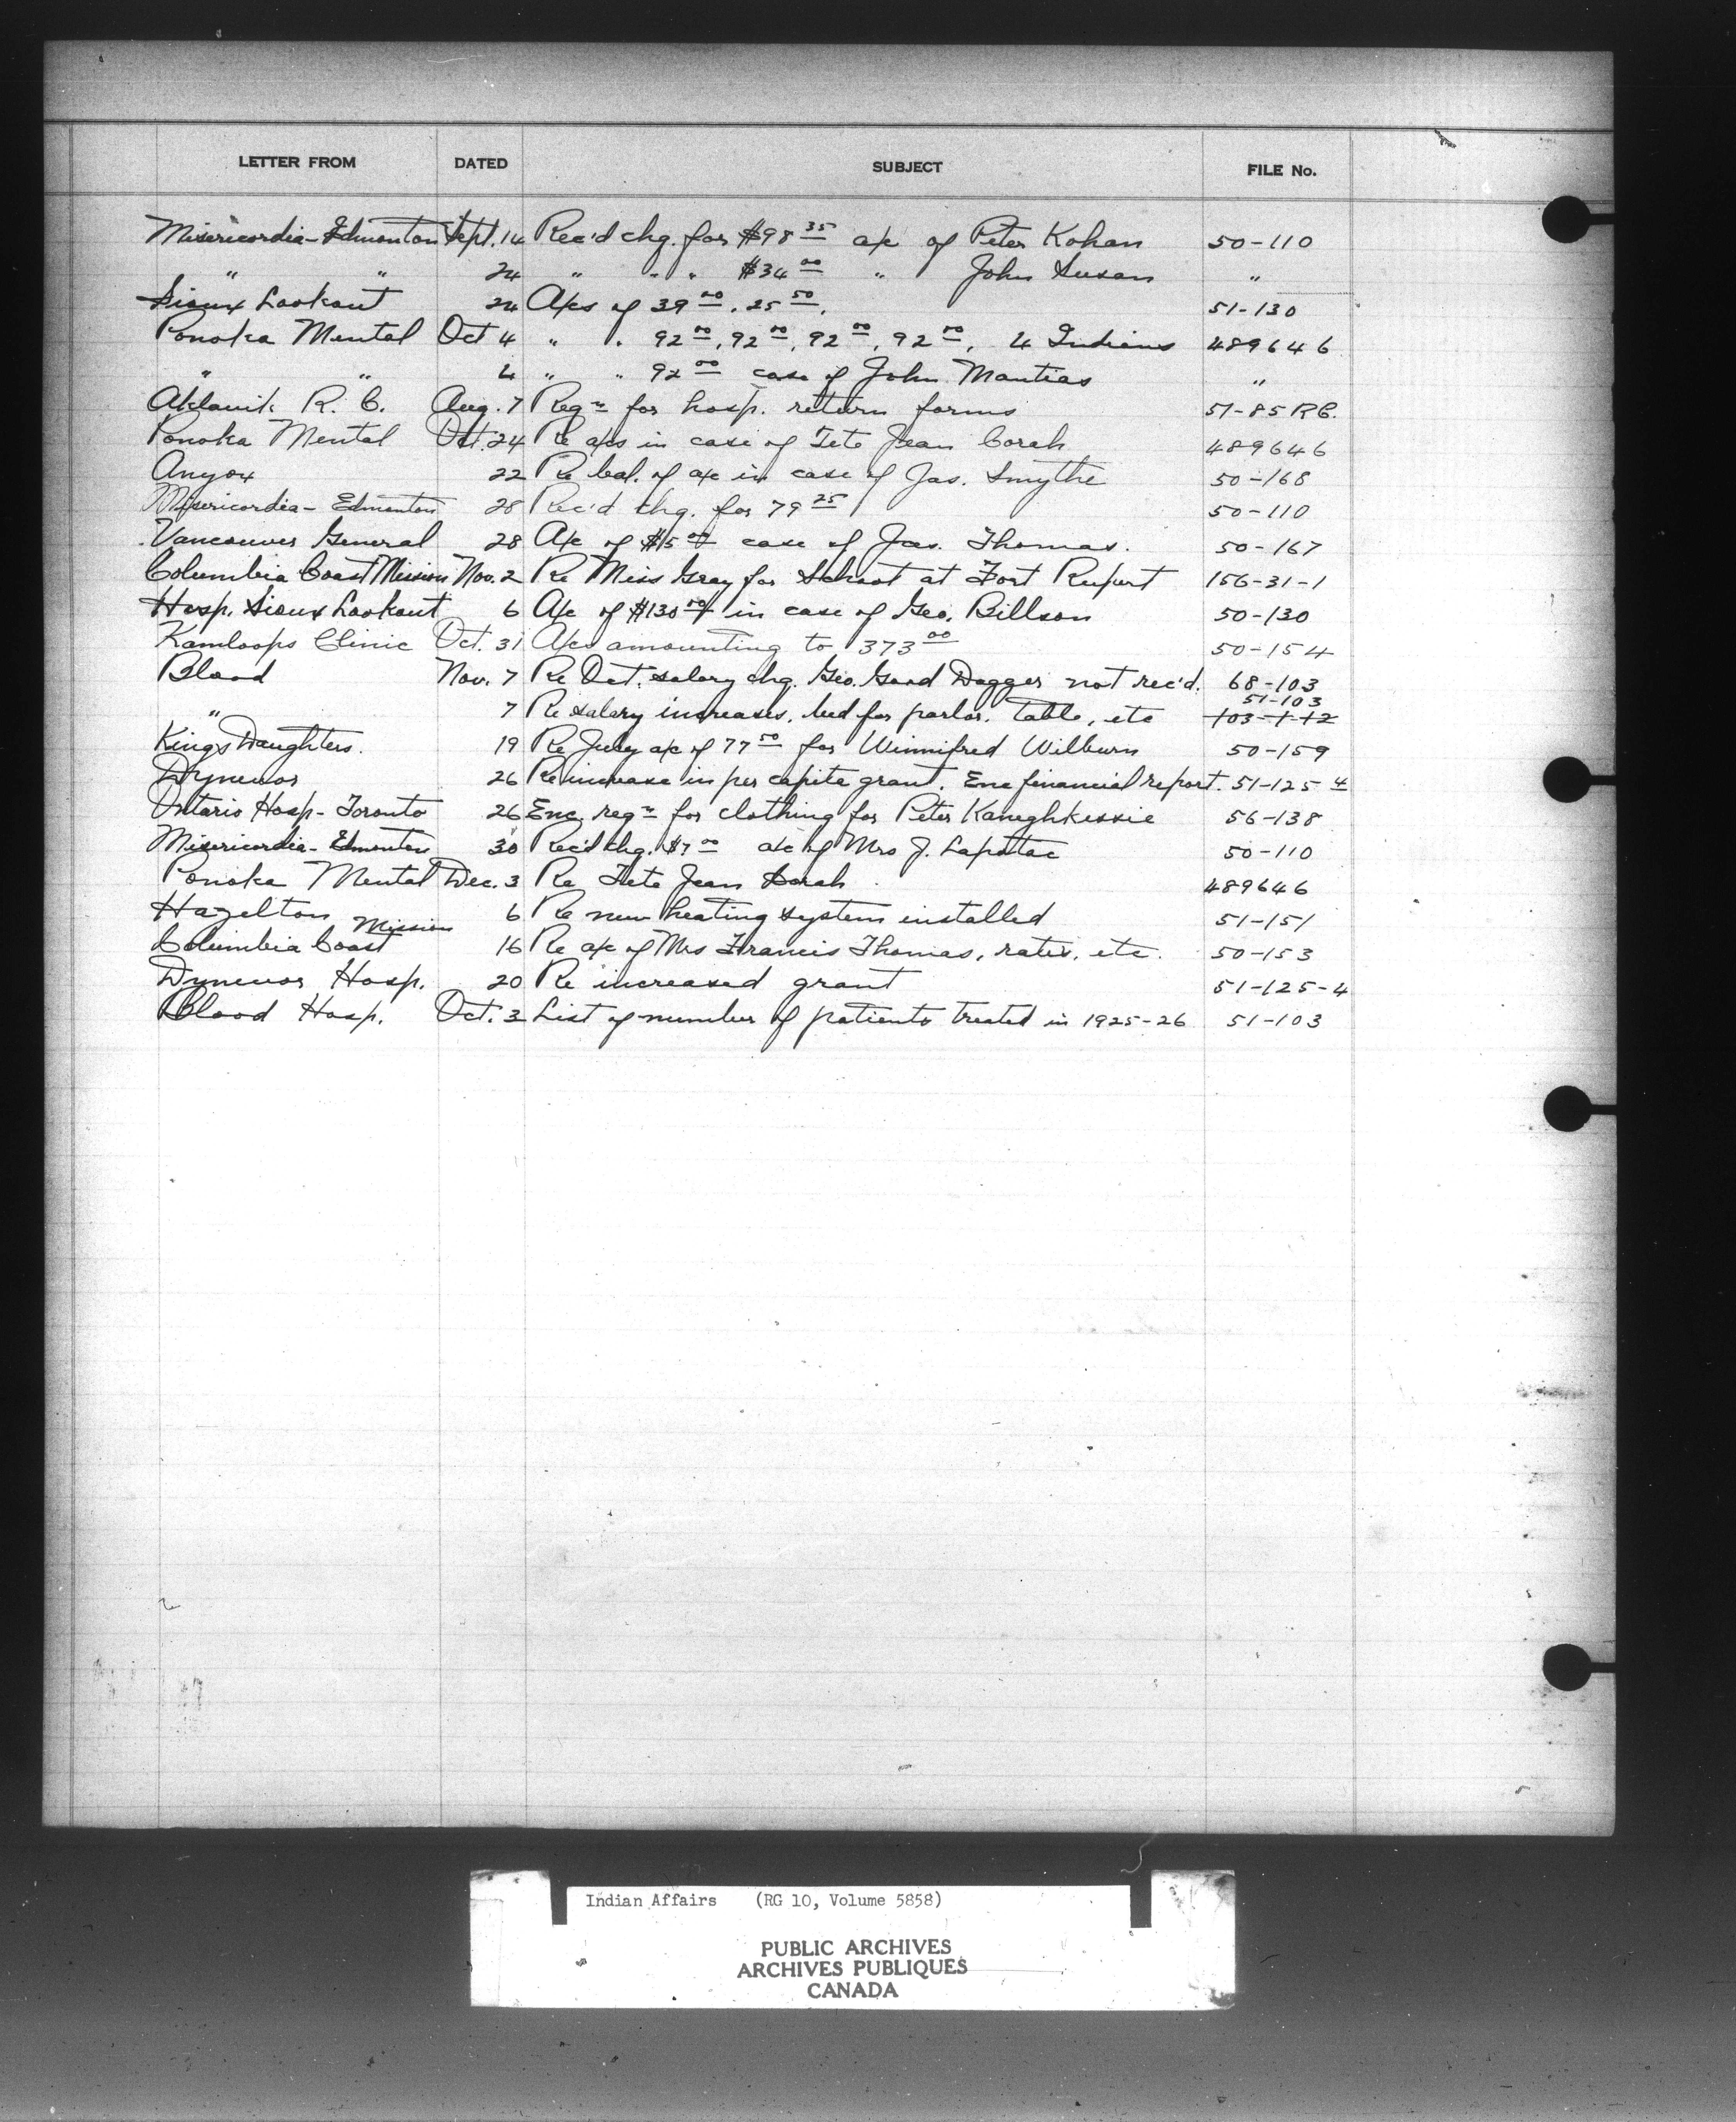 LETTER FROM DATED SUBJECT FILE No.
Misericordia-Edmonton Sept. 14 Rec'd chg. for $98 35 a/c of Peter Kohan 50-110
" " 24 " " " $34 00 " John Susan "
Sioux Lookout 24 A/cs of 39 00, 25 50, 51-130
Ponoka Mental Oct 4 " " 92 00, 92 00, 92 00, 92 00, 4 Indians 489646
" " 4 " " 92 00 case of John Mantias "
Aklavik R. C. Aug. 7 Reqn for hosp. return forms 51-85 RC.
Ponoka Mental Oct. 24 Re a/cs in case of Tete Jean Corah 489646
Anyox 22 Re bal. of a/c in case of Jas. Smythe 50-168
Misericordia - Edmonton 28 Rec'd chg. for 79 25 50-110
Vancouver General 28 A/c of $5 00 case of Jas. Thomas. 50-167
Columbia Coast Mission Nov. 2 Re Miss Gray for School at Fort Rupert 156-31-1
Hosp. Sioux Lookout 6 A/c of $130 50 in case of Geo. Billson 50-130
Kamloops Clinic Oct. 31 A/cs amounting to 373 00 50-154
Blood Nov. 7 Re Oct. salary chg. Geo. Good Dagger not rec'd. 68-103
" 7 Re salary increases, bed for parlor, table, etc 51-103 103-1-12
Kings Daughters. 19 Re July a/c of 77 50 for Winnifred Wilburn 50-159
Dynevor 26 Re increase in per capita grant. Enc financial report. 51-125-4
Ontario Hosp- Toronto 26 Enc. reqn for clothing for Peter Kaneghkessie 56-138
Misericordia- Edmonton 30 Rec'd chg. $7 00 a/c of Mrs J. Lapatac 50-110
Ponoka Mental Dec. 3 Re Tete Jean Corah 489646
Hazelton 6 Re new heating system installed 51-151
Columbia Coast Mission 16 Re a/c of Mrs Francis Thomas, rates, etc. 50-153
Dynevor Hosp. 20 Re increased grant 51-125-4
Blood Hosp. Oct. 3 List of number of patients treated in 1925-26 51-103
Indian Affairs (RG 10, Volume 5858)
PUBLIC ARCHIVES
ARCHIVES PUBLIQUES
CANADA